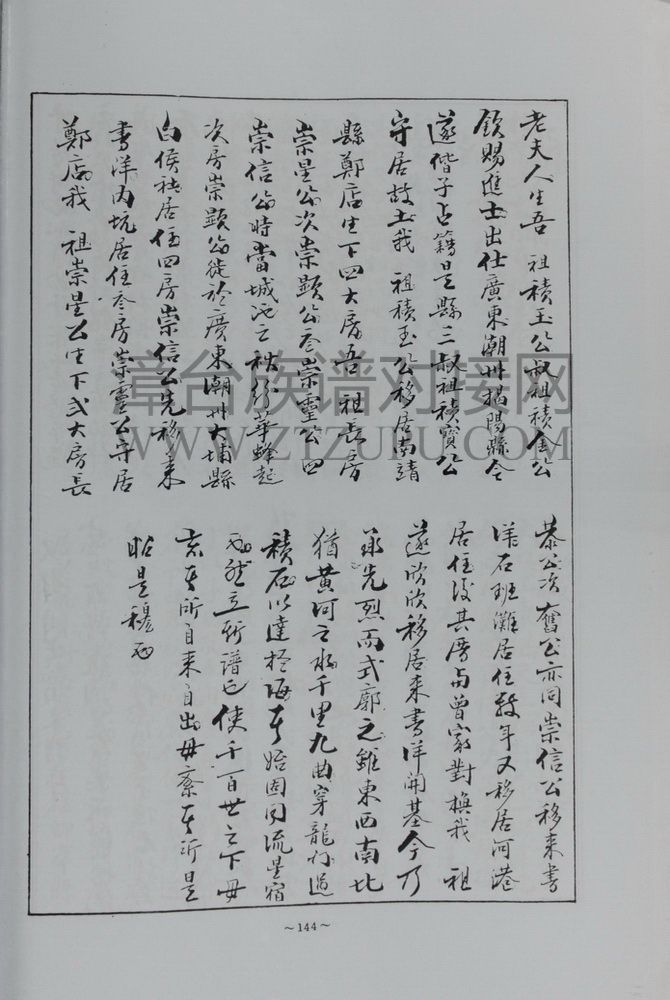 老夫人生吾 祖積玉公叔祖積金公
欽賜進士出仕廣東潮州揭陽縣令
遂偕子占籍是縣三叔祖積寶公
守居故土我 祖積玉公移居南靖
縣鄭店生下四大房吾祖長房
崇星公次崇顯公叁崇靈公四
崇信公時當城池之 蜂起
次房崇顯公徙於廣東潮州大埔縣
白侯社居住四房崇信公先移來
書洋內坑居住叁房崇靈公守居
鄭店我 祖崇星公生下式大房長
恭公次奮公亦同崇信公移來書
洋石班灘居住数年又移居河港
居住後其厝与曾家對換我 祖
遂欣欣移居来書洋開基今乃
承先烈而式廓之雖東西南北
猶黄河之水千里九曲穿龍門過
積石以達於海其始固同流星宿
也然立斯譜已使千百世之下毋
忘其所自来自出毋紊其所是
昭是穆也
~144~
章台族谱对接网
WWW.ZTZUPU.COM